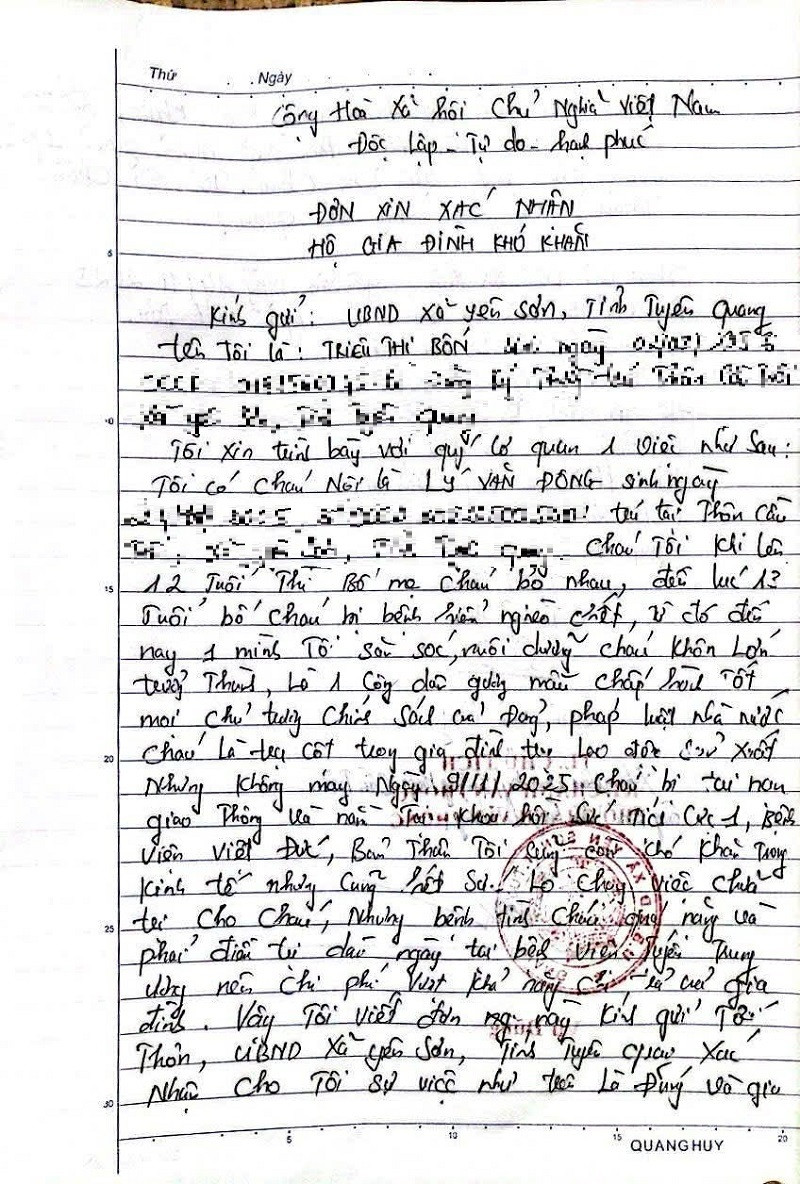 Thứ Ngày
Cộng Hoà Xã hội Chủ Nghĩa Việt Nam
Độc Lập - Tự do - hạnh phúc
ĐƠN XIN XÁC NHẬN
HỘ GIA ĐÌNH KHÓ KHĂN
5
Kính gửi: UBND Xã yên Sơn, Tỉnh Tuyên Quang
tên Tôi là: TRIỆU THỊ BỐN ngày
10
Tôi xin trình bày với quý cơ quan 1 việc như sau:
Tôi có cháu Nội là LÝ VĂN ĐÔNG sinh ngày
trú tại Thôn
Cháu Tôi khi lên
15
12 Tuổi Thì Bố mẹ cháu bỏ nhau, đến lúc 13
Tuổi bố cháu bị bệnh hiểm nghèo chết, từ đó đến
nay 1 mình Tôi săn sóc, nuôi dưỡng cháu khôn lớn
trưởng Thành, Là 1 công dân gương mẫu chấp hành Tốt
mọi chủ trương chính sách của Đảng, pháp luật nhà nước
20
cháu Là trụ cột trong gia đình lao động sản xuất
Nhưng không may Ngày 9/11/2025 cháu bị tai nạn
giao Thông và nằm Tại khoa hồi sức tích cực 1, Bệnh
viện Việt Đức, Bản Thân Tôi cũng còn khó khăn Trong
kinh tế nhưng cũng hết sức Lo chạy việc chữa
25
trị cho cháu, Nhưng bệnh tình cháu quá nặng và
phải điều trị dài ngày tại bệnh viện Tuyến Trung
ương nên chi phí vượt khả năng chi trả của gia
đình. Vậy Tôi viết đơn này kính gửi Tới
Thôn, UBND Xã yên Sơn, Tỉnh Tuyên Quang Xác
30
Nhận cho Tôi sự việc như trên Là Đúng và gia
5 10 15 20
QUANG HUY